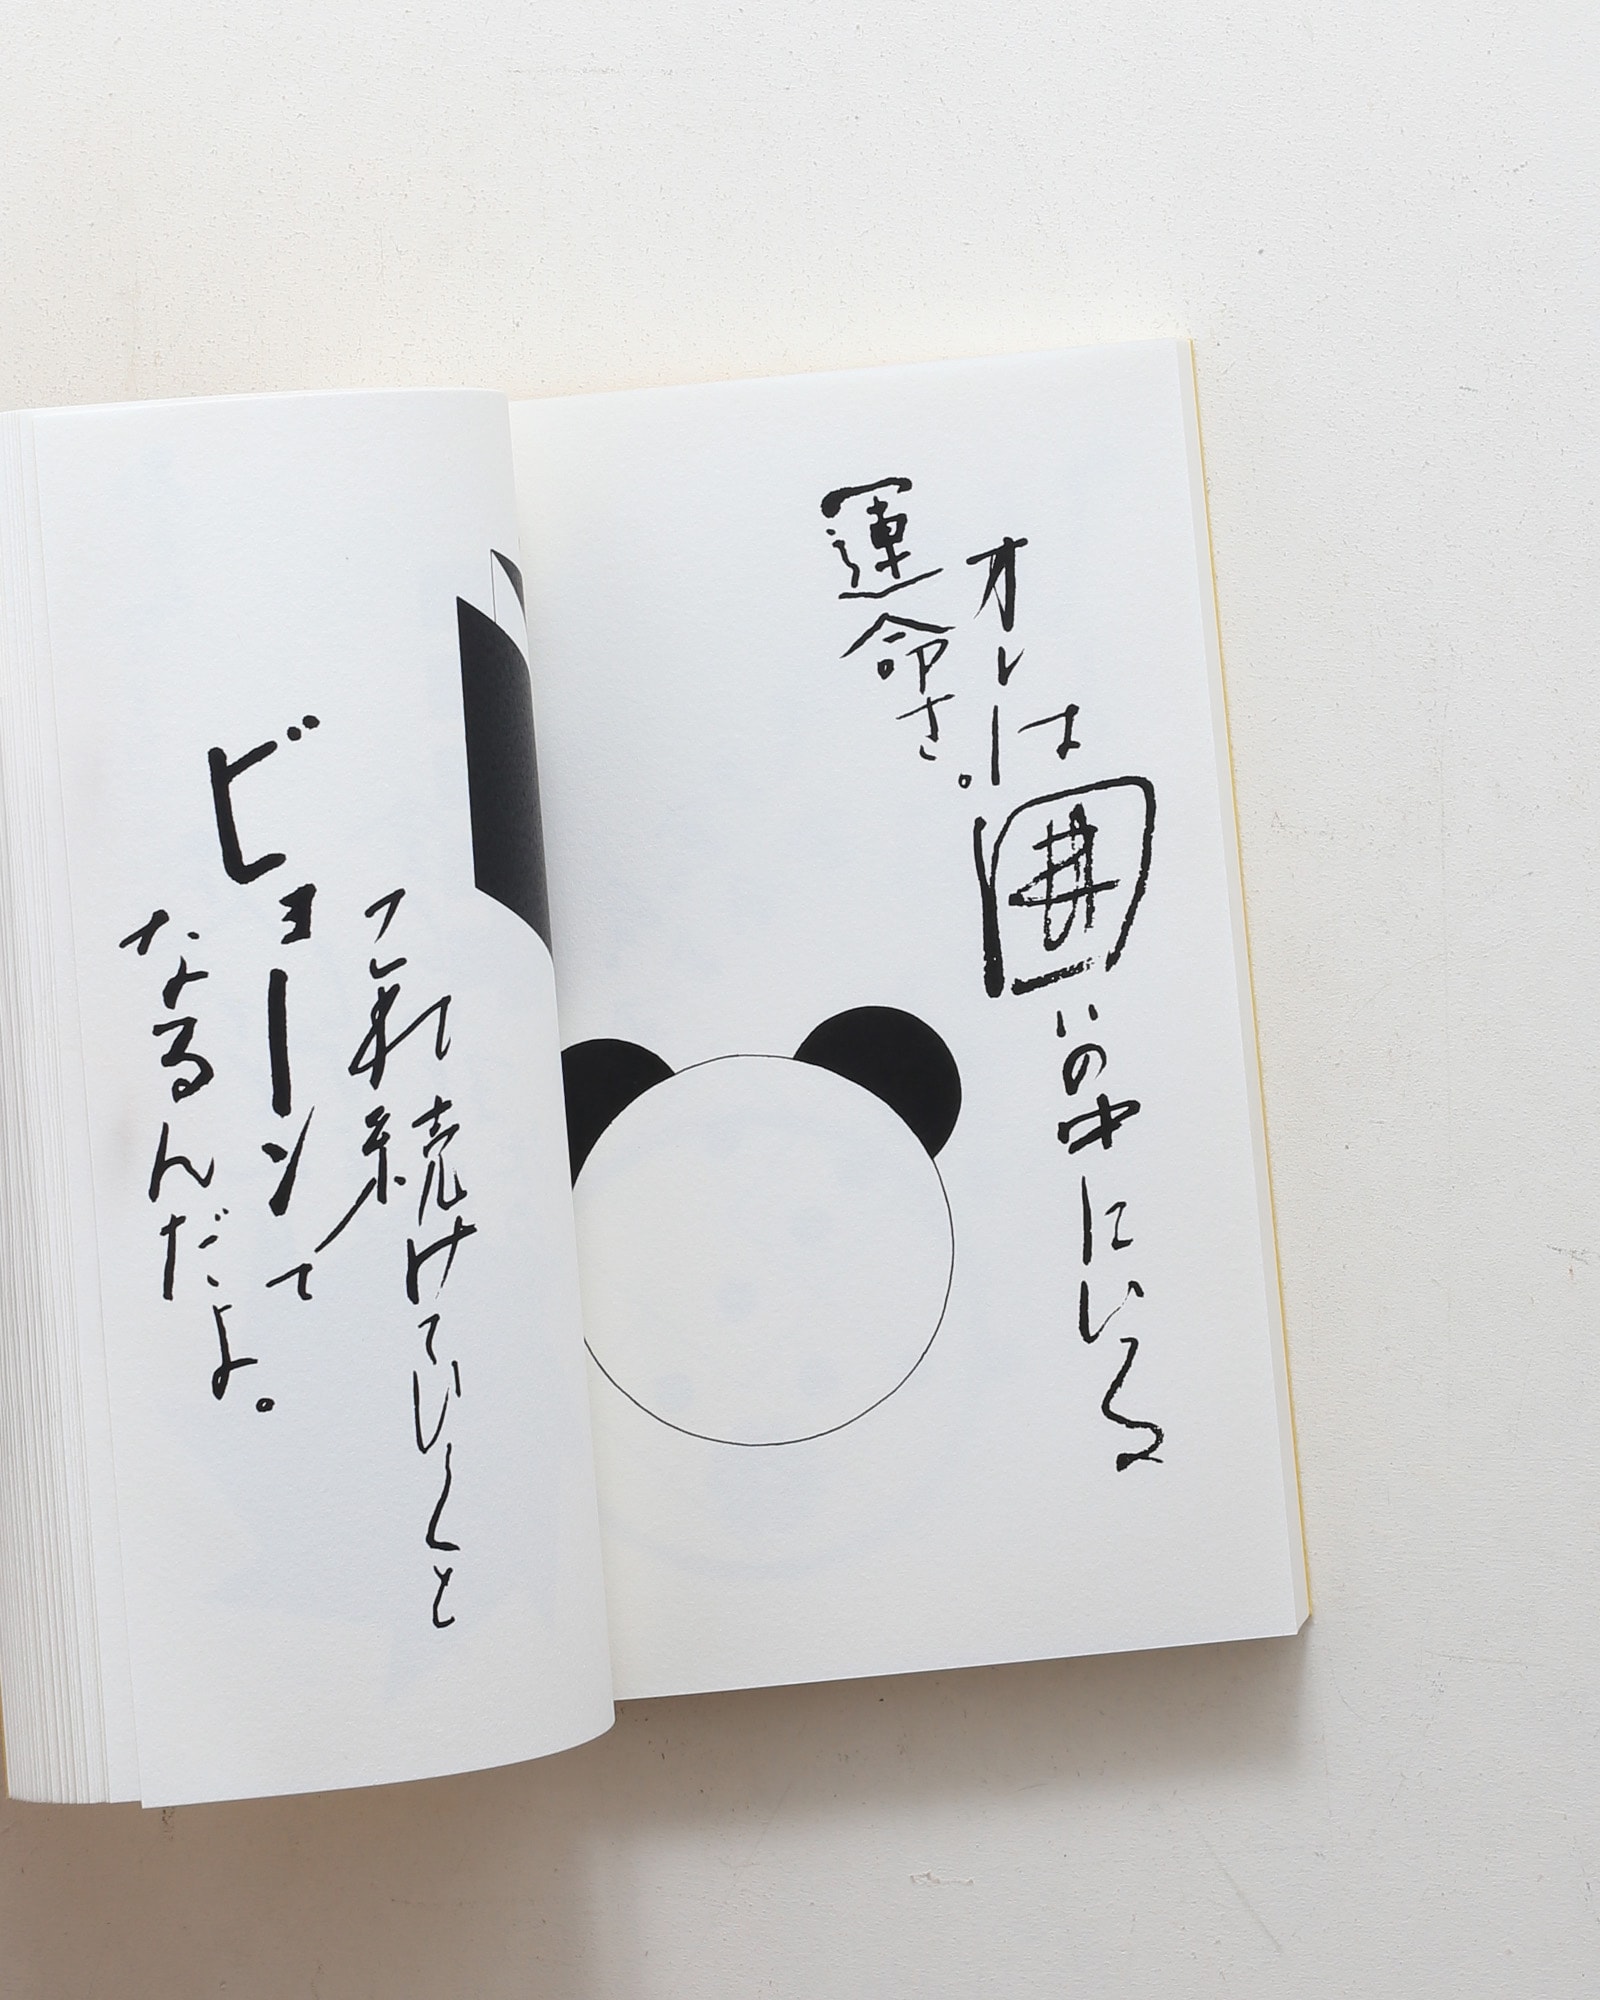 オレは囲いの中にいる
運命さ。
これ続けていくと
ビョーンて
なるんだよ。